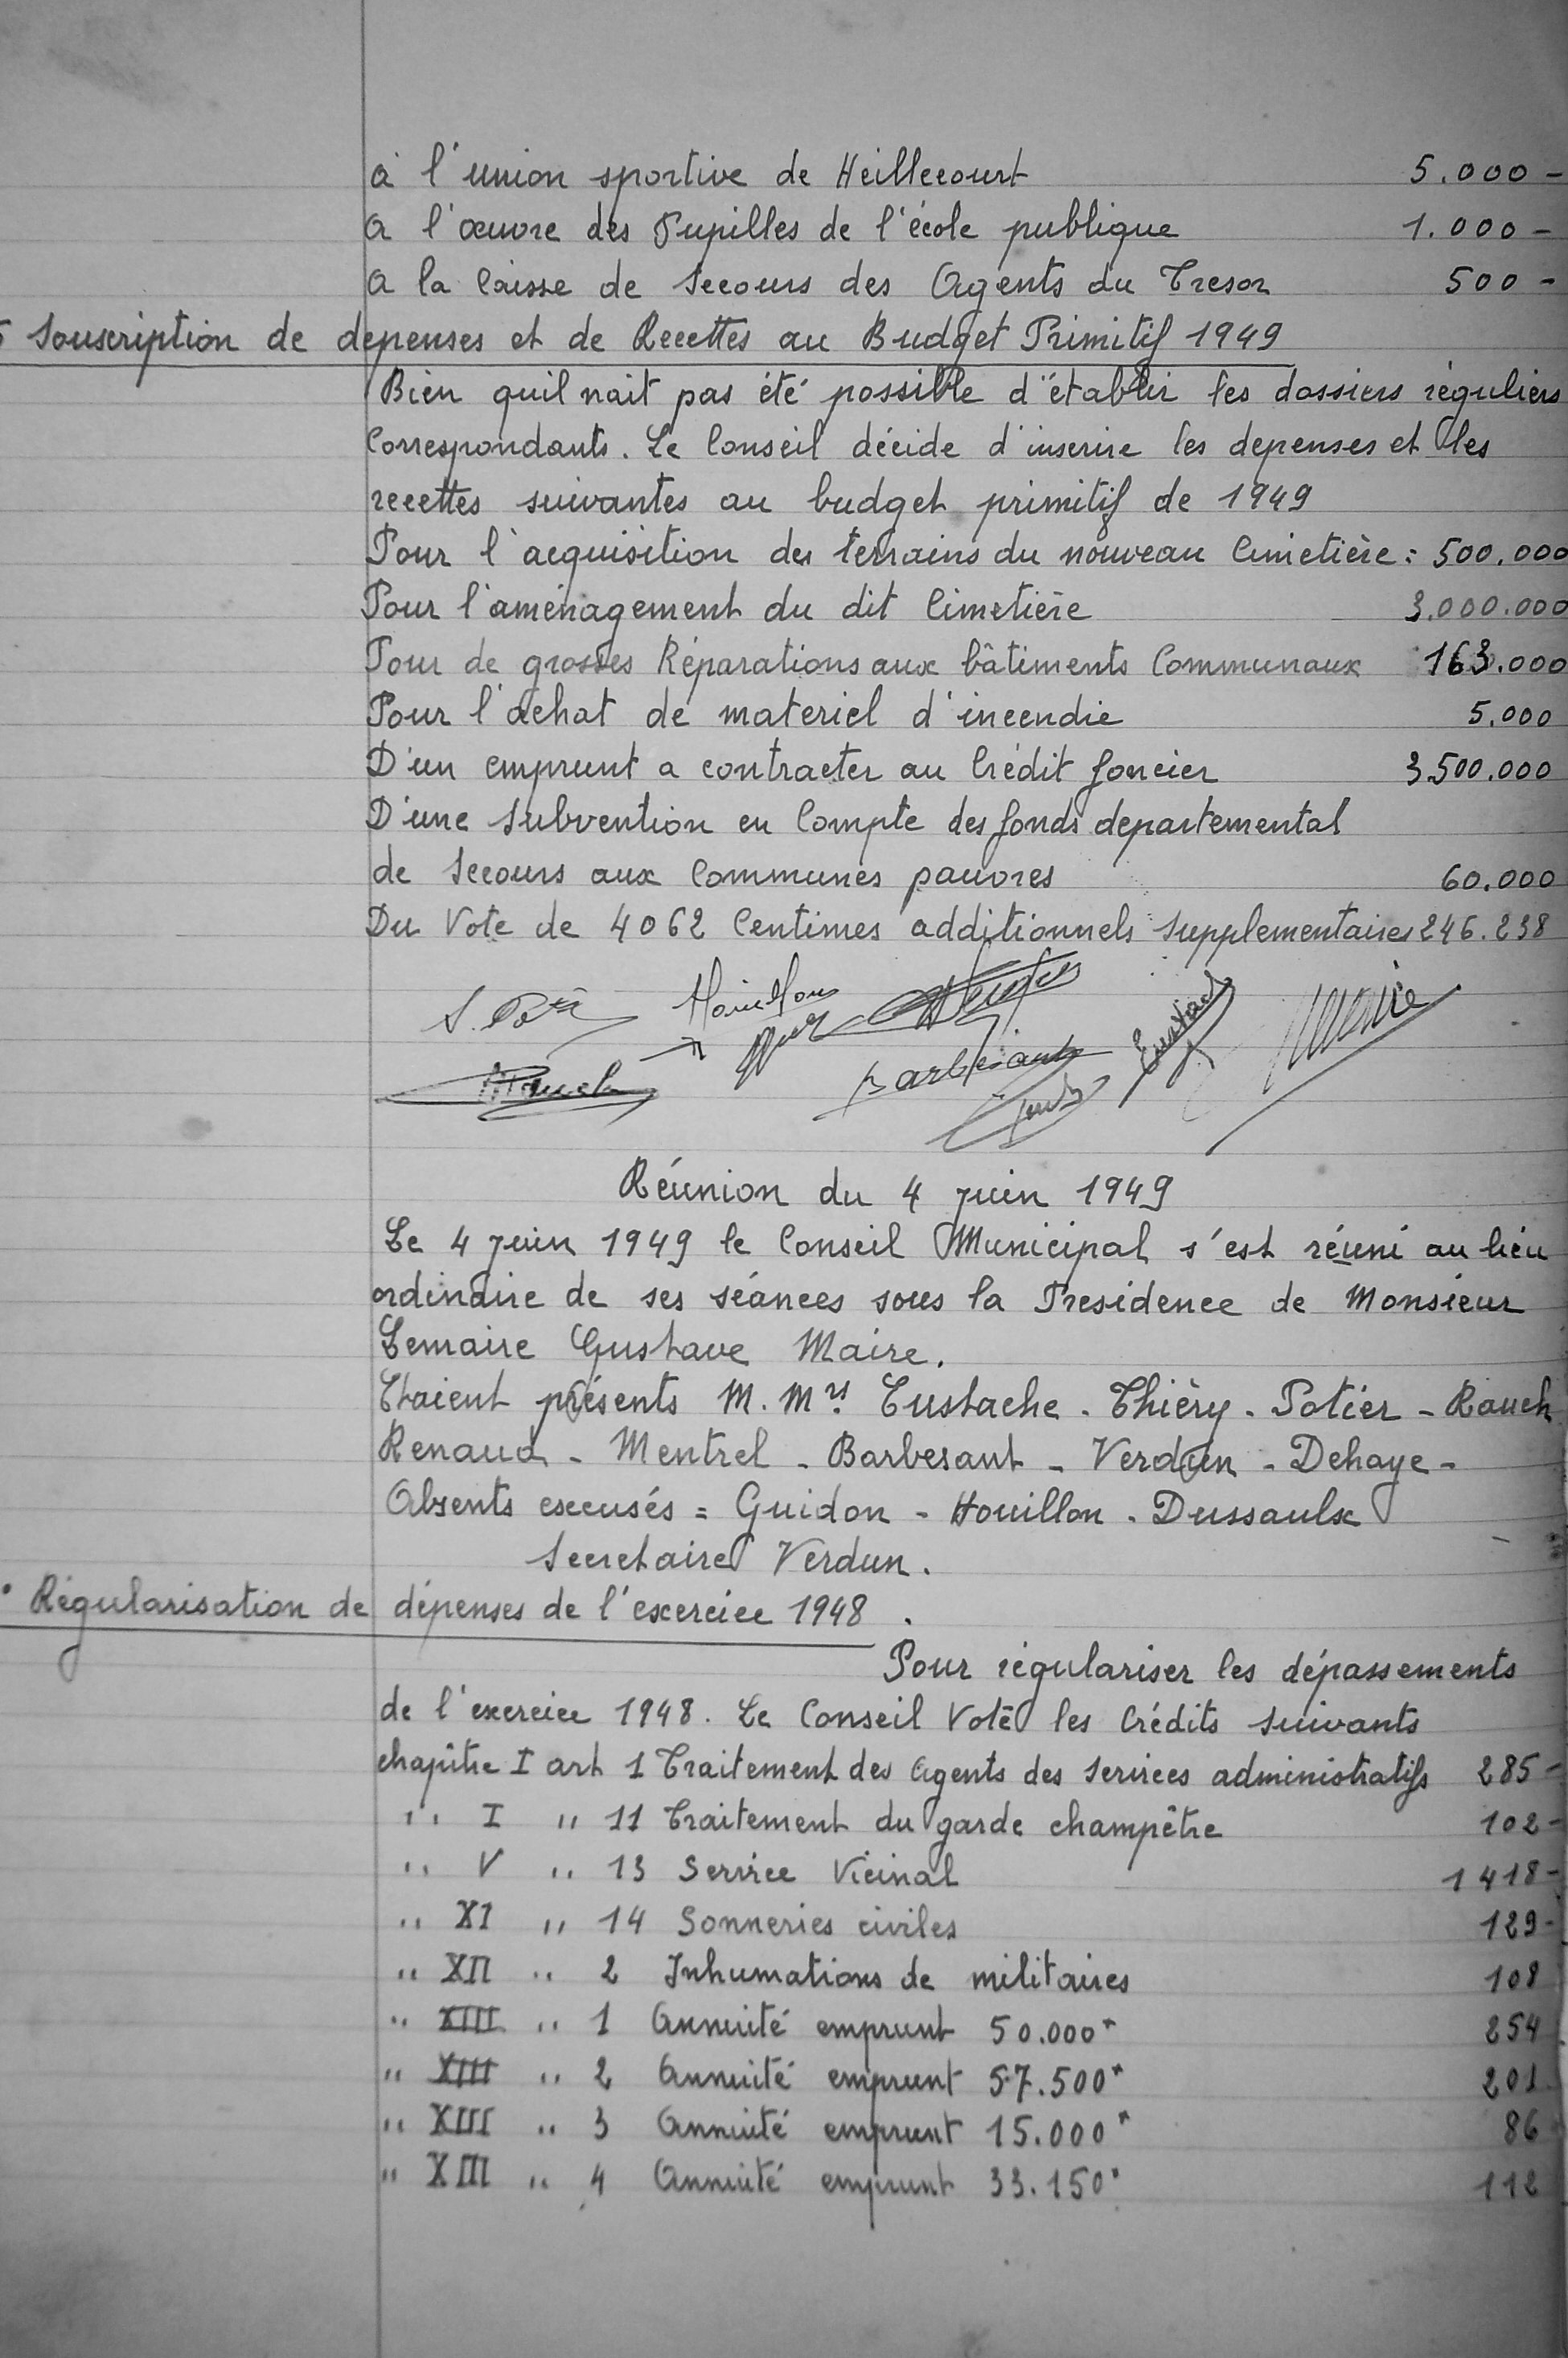 à l'union sportive de Heillecourt 5.000 -
a l'œuvre des Pupilles de l'école publique 1.000 -
a la Caisse de Secours des Agents du Tresor 500 -
Souscription de depenses et de Recettes au Budget Primitif 1949
Bien quil nait pas été possible d'établir les dossiers réguliers
Correspondants. Le Conseil décide d'inscrire les depenses et les
recettes suivantes au budget primitif de 1949
Pour l'acquisition des terrains du nouveau Cimetière : 500.000
Pour l'aménagement du dit Cimetière 3.000.000
Pour de grosses Réparations aux bâtiments Communaux 163.000
Pour l'achat de materiel d'incendie 5.000
D'un emprunt a contracter au Crédit foncier 3.500.000
D'une Subvention en Compte des fonds departemental
de Secours aux Communes pauvres 60.000
Du Vote de 4062 Centimes additionnels supplementaires 246.238
Houillon
Barbesant
Eustache
Réunion du 4 juin 1949
Le 4 juin 1949 le Conseil Municipal s'est réuni au lieu
ordinaire de ses séances sous la Presidence de Monsieur
Lemaire Gustave Maire.
Etaient présents M. Mrs Eustache - Thièry - Potier - Rauch
Renaud - Mentrel - Barbesant - Verdun - Dehaye -
Absents excusés = Guidon - Houillon - Dussaulx
Secretaire Verdun.
Régularisation de dépenses de l'exercice 1948.
Pour régulariser les dépassements
de l'exercice 1948. Le Conseil Vote les Crédits suivants
chapitre I art 1 Traitement des Agents des Services administratifs 285 -
" I " 11 Traitement du garde champêtre 102 -
" V " 13 Service Vicinal 1418 -
" XI " 14 Sonneries civiles 129 -
" XII " 2 Inhumations de militaires 108
" XIII " 1 Annuité emprunt 50.000 254
" XIII " 2 Annuité emprunt 57.500 201
" XIII " 3 Annuité emprunt 15.000 86
" XIII " 4 Annuité emprunt 33.150 112